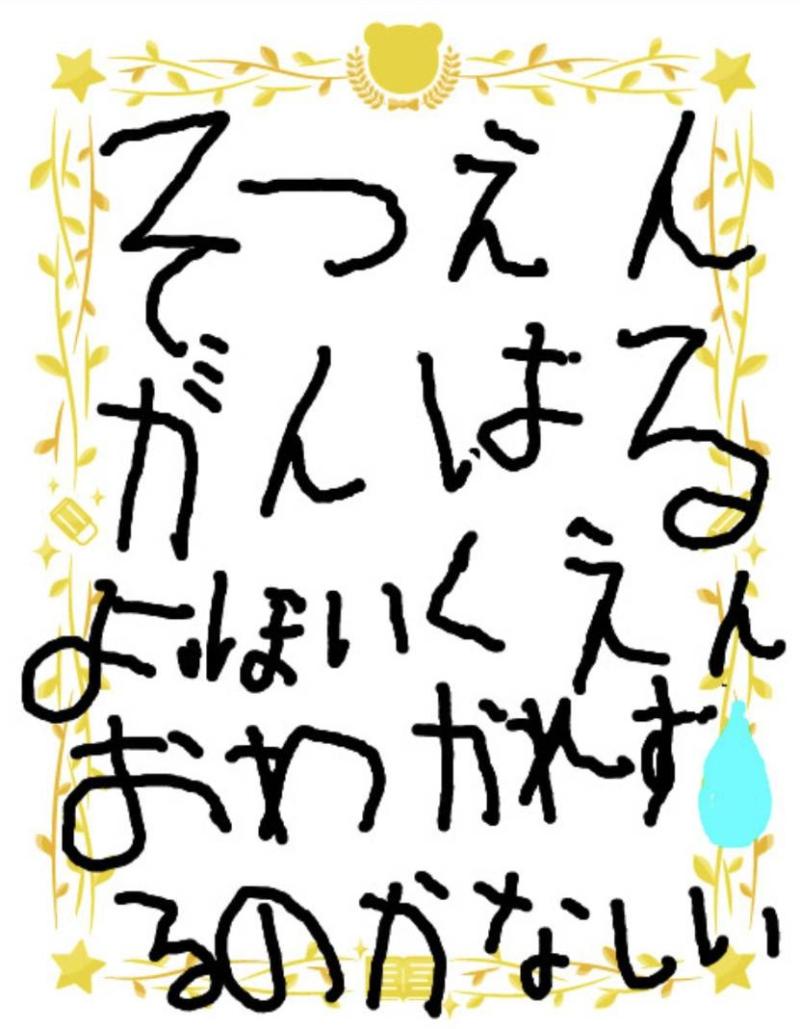 そつえん
がんはる
よほいくえん
おわかれす
るのかなしい